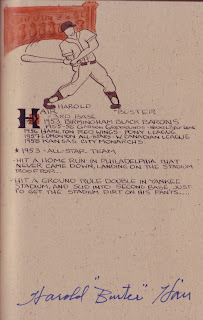 HAROLD "BUSTER"
HAIR
3RD BASE
1953 BIRMINGHAM BLACK BARONS
PONY LEAGUE
1957 EDMONTON - W. CANADIAN LEAGUE
1958 KANSAS CITY MONARCHS
★ 1953 - ALL-STAR TEAM
- HIT A HOME RUN IN PHILADELPHIA THAT
NEVER CAME DOWN, LANDING ON THE STADIUM
ROOFTOP...
- HIT A GROUND RULE DOUBLE IN YANKEE
STADIUM, AND SLID INTO SECOND BASE, JUST
TO GET THE STADIUM DIRT ON HIS PANTS....
Harold "Buster" Hair